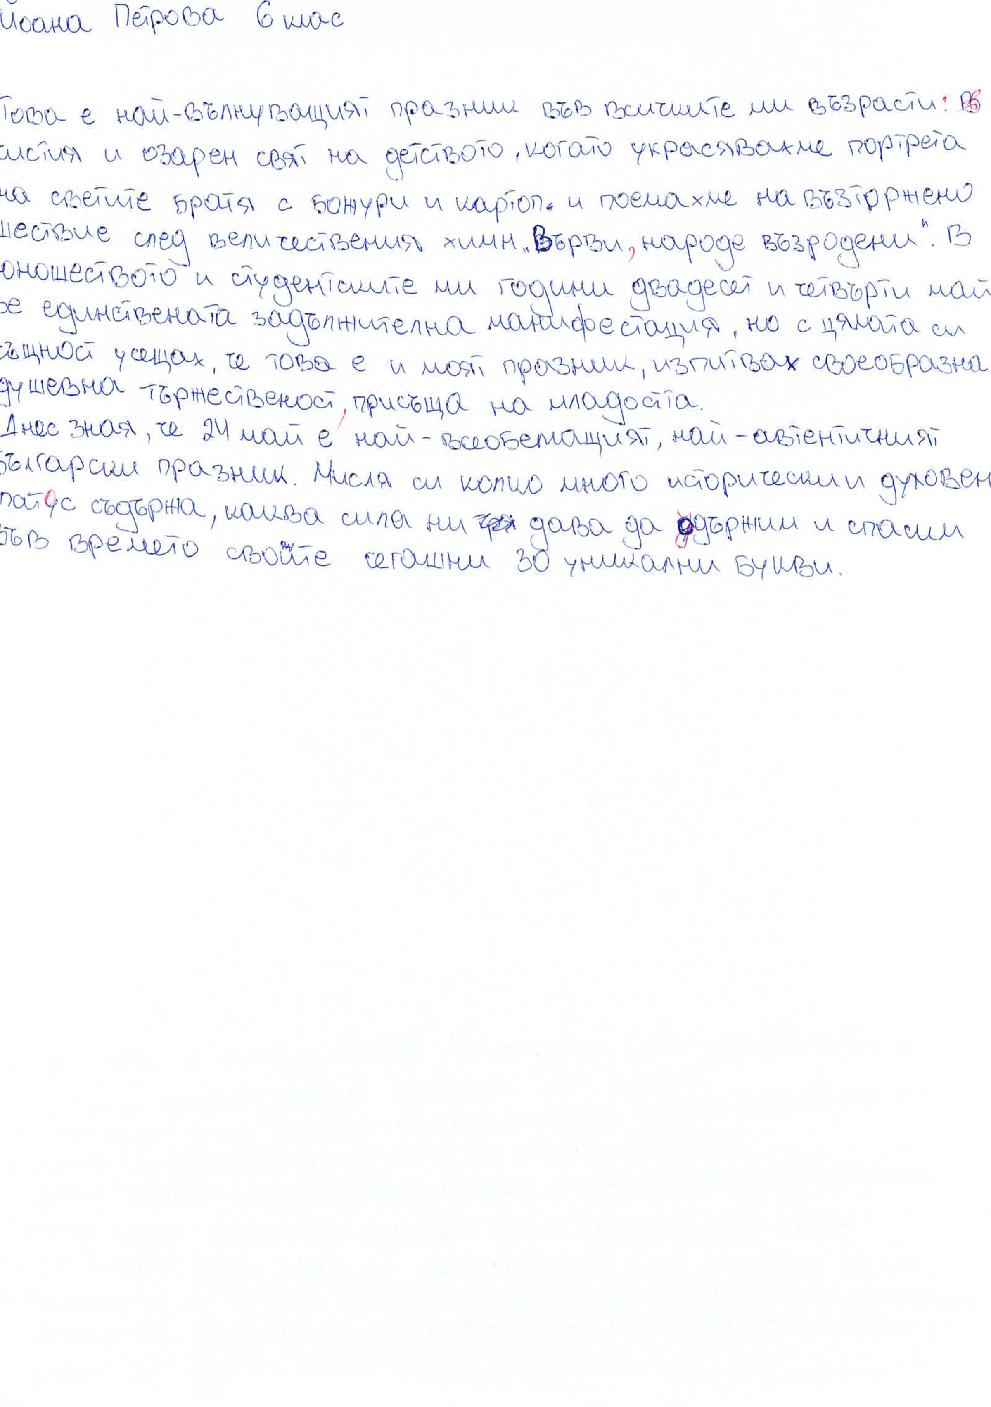 Йоана Петрова 6 клас
Това е най-вълнуващият празник във всичките ми възрасти: в
чистия и озарен свят на детството, когато украсявахме портрета
на светите братя с божури и картоп. и поемахме на възторжено
шествие след величествения химн „Върви, народе възродени". В
юношеството и студентските ми години двадесет и четвърти май
бе единствената задължителна манифестация, но с цялата си
същност усещах, че това е и моят празник, изпитвах своеобразна
душевна тържественост, присъща на младостта.
Днес зная, че 24 май е най-всеобемащият, най-автентичният
български празник. Мисля си колко много исторически и духовен
патос съдържа, каква сила ни дава да одържим и спасим
във времето своите сегашни 30 уникални букви.